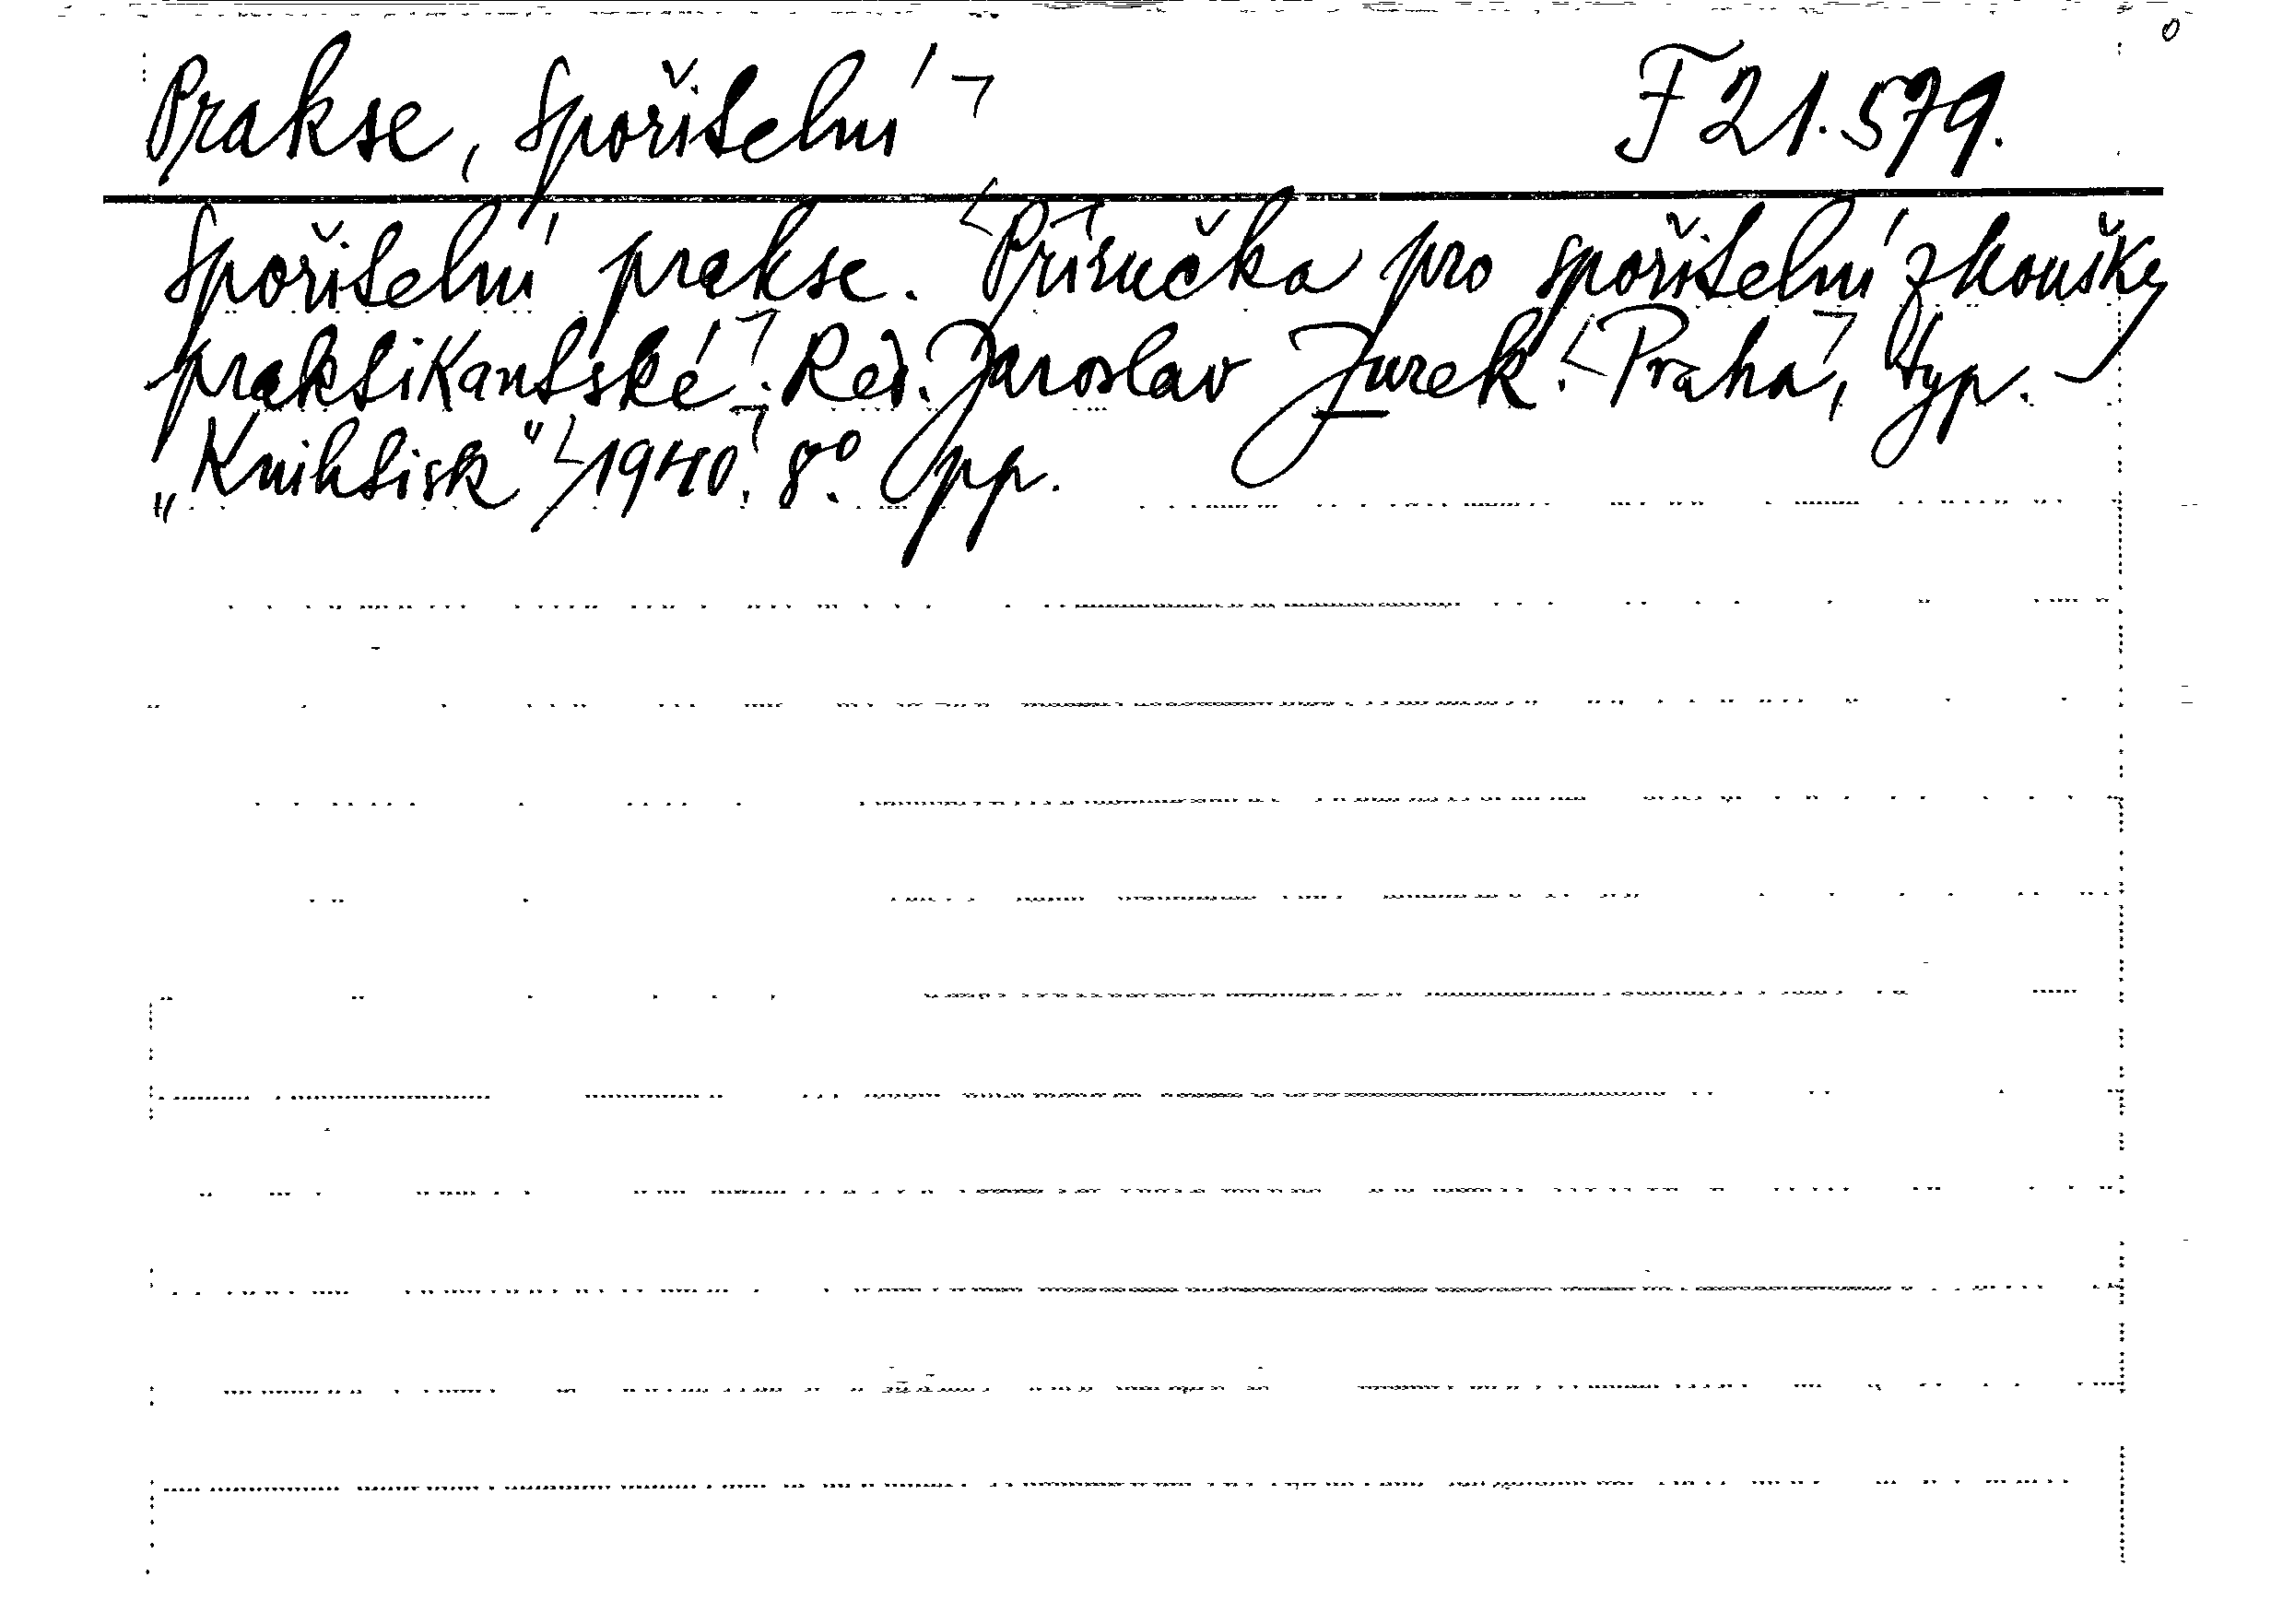 Prakse, Spořitelní ¬ F 21.579.
Spořitelní prakse. Příručka pro spořitelní zkoušky
praktikantské. Red. Jaroslav Jurek. Praha, typ.
„Knihtisk" 1940. 8°. pp.